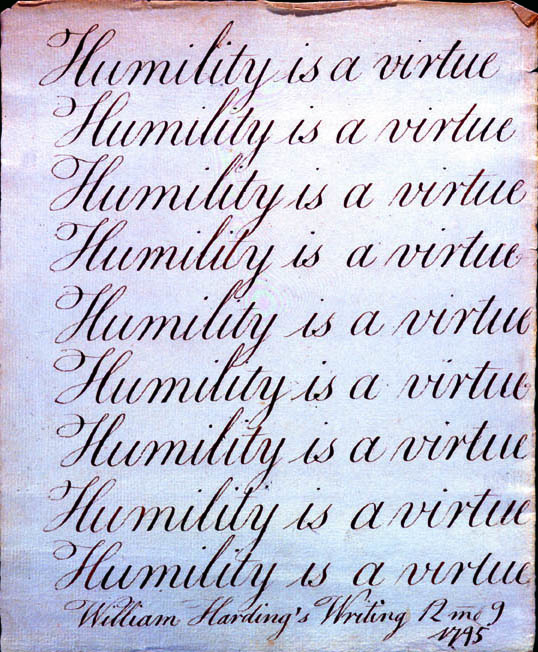 Humility is a virtue
Humility is a virtue
Humility is a virtue
Humility is a virtue
Humility is a virtue
Humility is a virtue
Humility is a virtue
Humility is a virtue
Humility is a virtue
William Harding's Writing 12 mo 9
1795